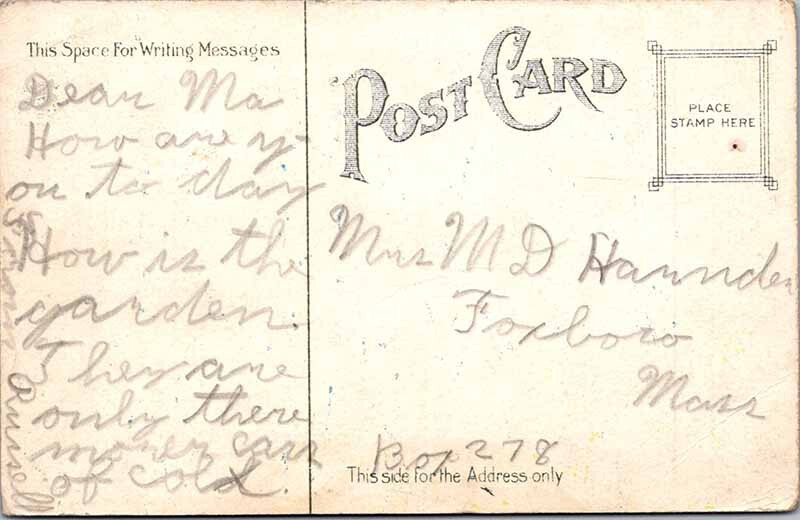 This Space For Writing Messages
Dear Ma
How are y-
ou to day
How is the
garden.
They are
only there
morer cass
of cold.
From Russell
POST CARD
PLACE
STAMP HERE
Mrs M D Hannden
Foxboro
Mass
Box 278
This side for the Address only